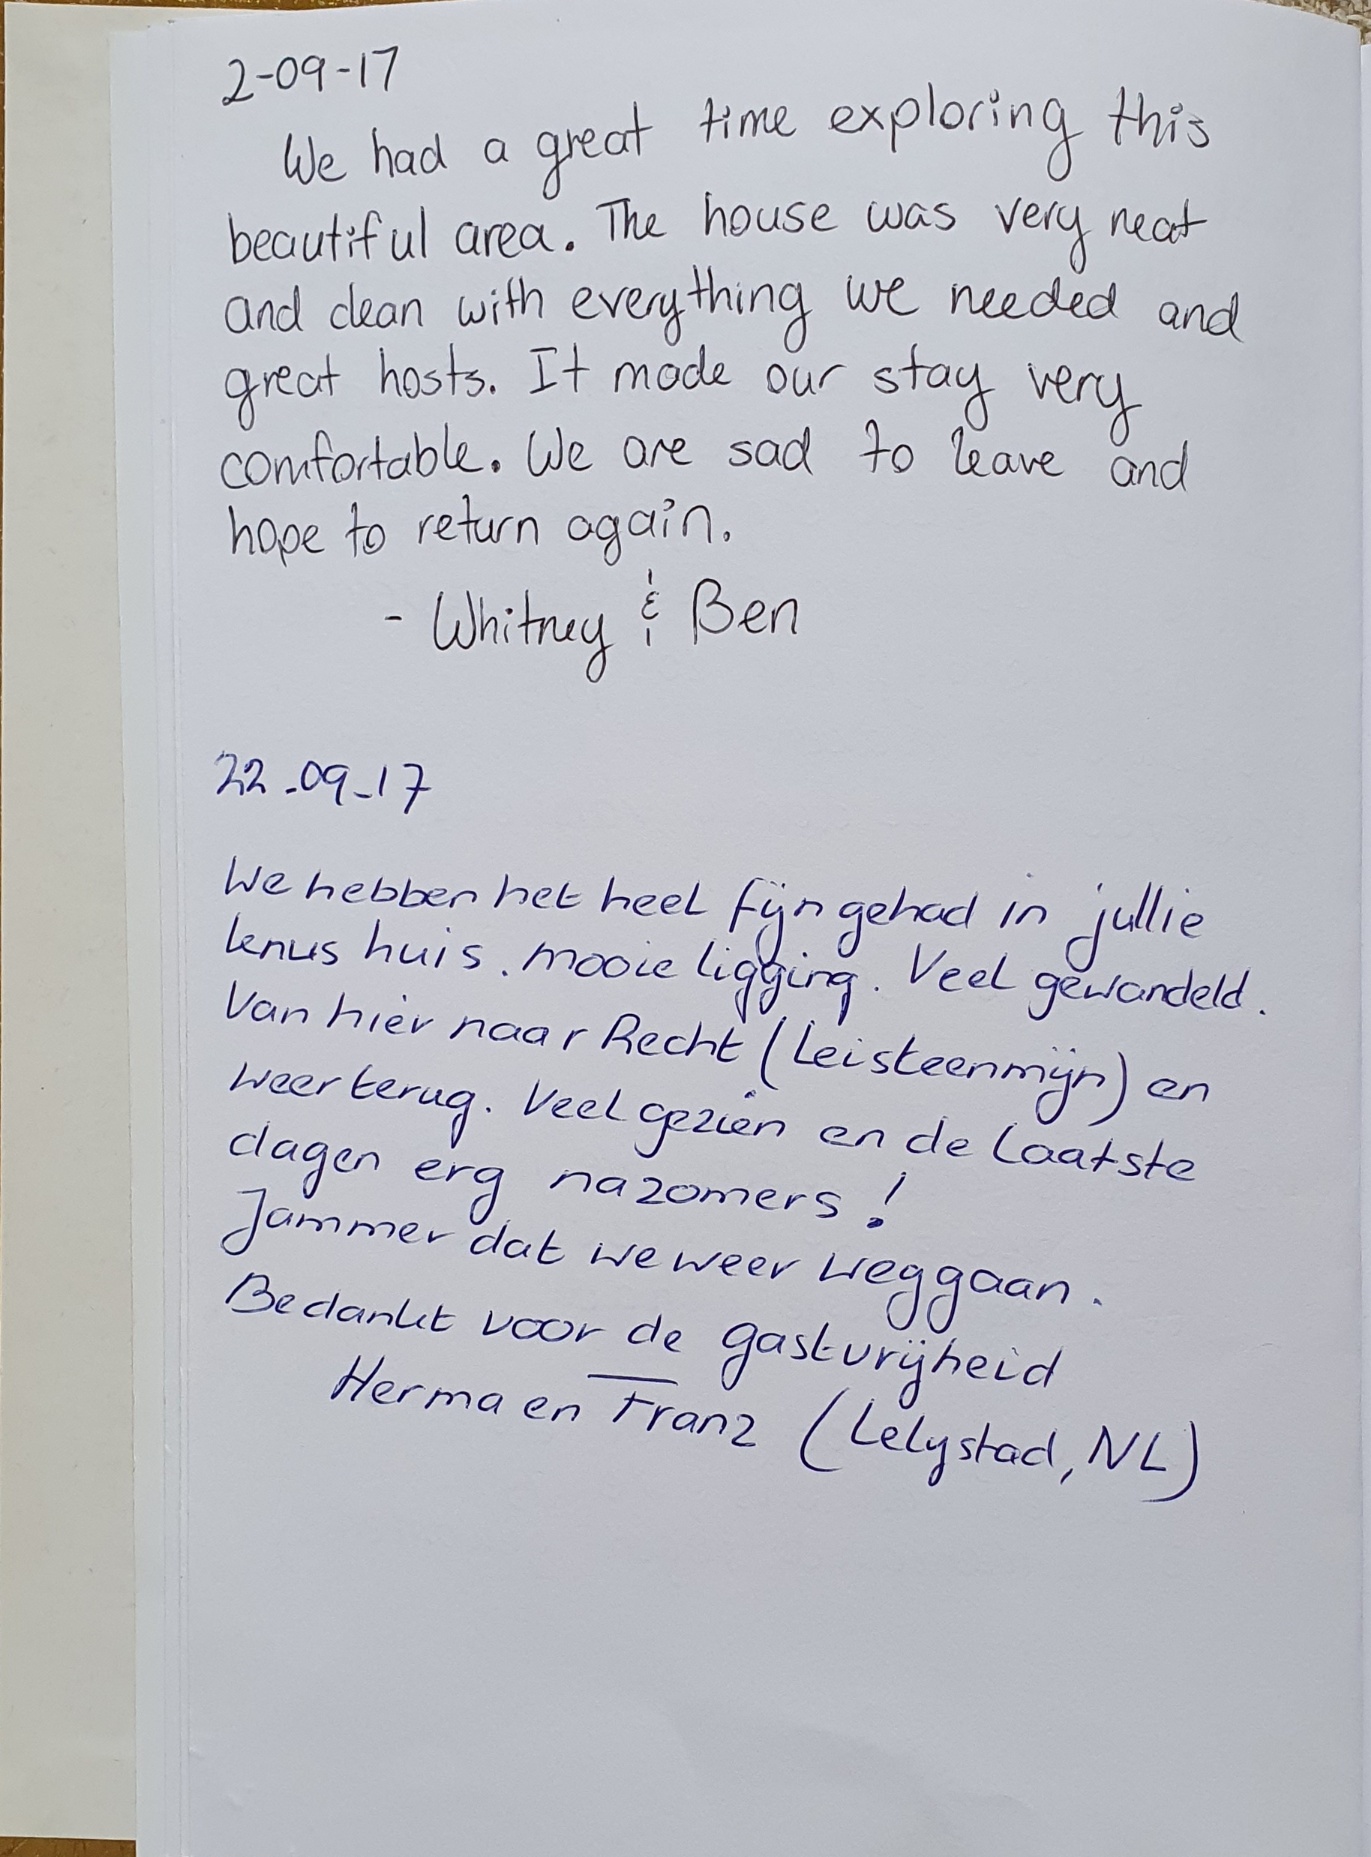 2-09-17
We had a great time exploring this
beautiful area. The house was very neat
and clean with everything we needed and
great hosts. It made our stay very
comfortable. We are sad to leave and
hope to return again.
- Whitney & Ben
22-09-17
We hebben het heel fijn gehad in jullie
knus huis. mooie ligging. Veel gewandeld.
Van hier naar Recht (Leisteenmijn) en
weer terug. Veel gezien en de laatste
dagen erg nazomers!
Jammer dat we weer weggaan.
Bedankt voor de gastvrijheid
Herma en Franz (Lelystad, NL)